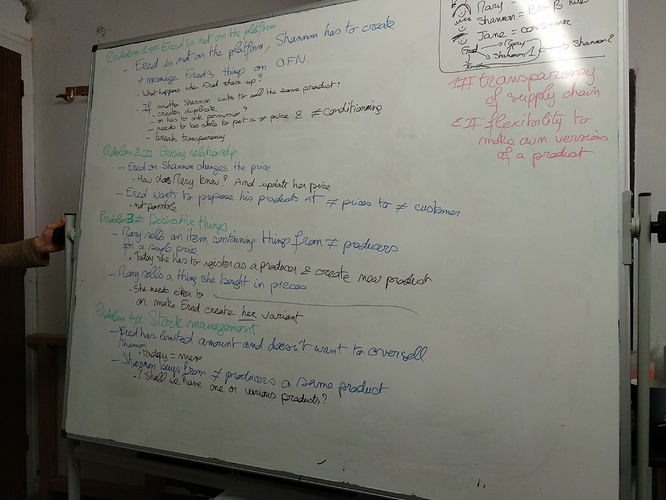 Problem 1 # Fred is not on the platform
- Fred is not on the platform, Shannon has to create
+ manage Fred's things on OFN.
· What happens when Fred shows up?
- If another Shannon wants to sell the same product.
- creates duplicate
- or has to ask permission?
- needs to be able to put a ≠ price & ≠ conditioning
- breaks transparency
Problem 2 # Pricing relationship
- Fred or Shannon changes the price
· How does Mary know? And update her price
- Fred wants to propose his products at ≠ prices to ≠ customer
· not possible
Problem 3 # Derivative things
- Mary sells an item containing things from ≠ producers
for a single price
· Today she has to register as a producer & create new product
- Mary sells a thing she bought in pieces
· She needs either to
or make Fred create her variant
Problem 4 # Stock management
- Fred has limited amount and doesn't want to oversell
Shannon
· Today = mess
- Shannon buys from ≠ producers a same product
· ? Shall we have one or various products?
Mary =
Shannon = B to B
Jane = consumer
Fred → Mary
Shannon 1 → Shannon 2
1 # transparency
of supply chain
2 # flexibility to
make own versions
of a product